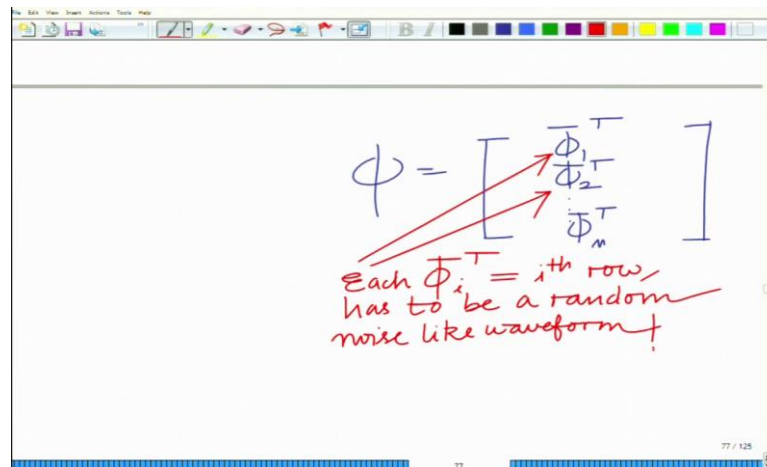 File Edit View Insert Actions Tools Help
B I
Φ = [ Φ̄₁ᵀ
Φ̄₂ᵀ
⋮
Φ̄ₙᵀ ]
Each Φ̄ᵢᵀ = iᵗʰ row,
has to be a random
noise like waveform!
77 / 125
77